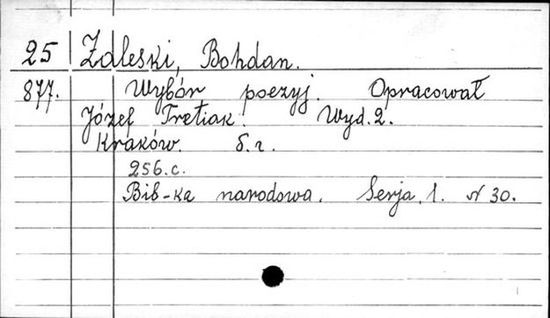 25 Zaleski, Bohdan.
877. Wybór poezyj. Opracował
Józef Tretiak. Wyd. 2.
Kraków. S. r.
256.c.
Bib-ka narodowa. Serja 1. N 30.